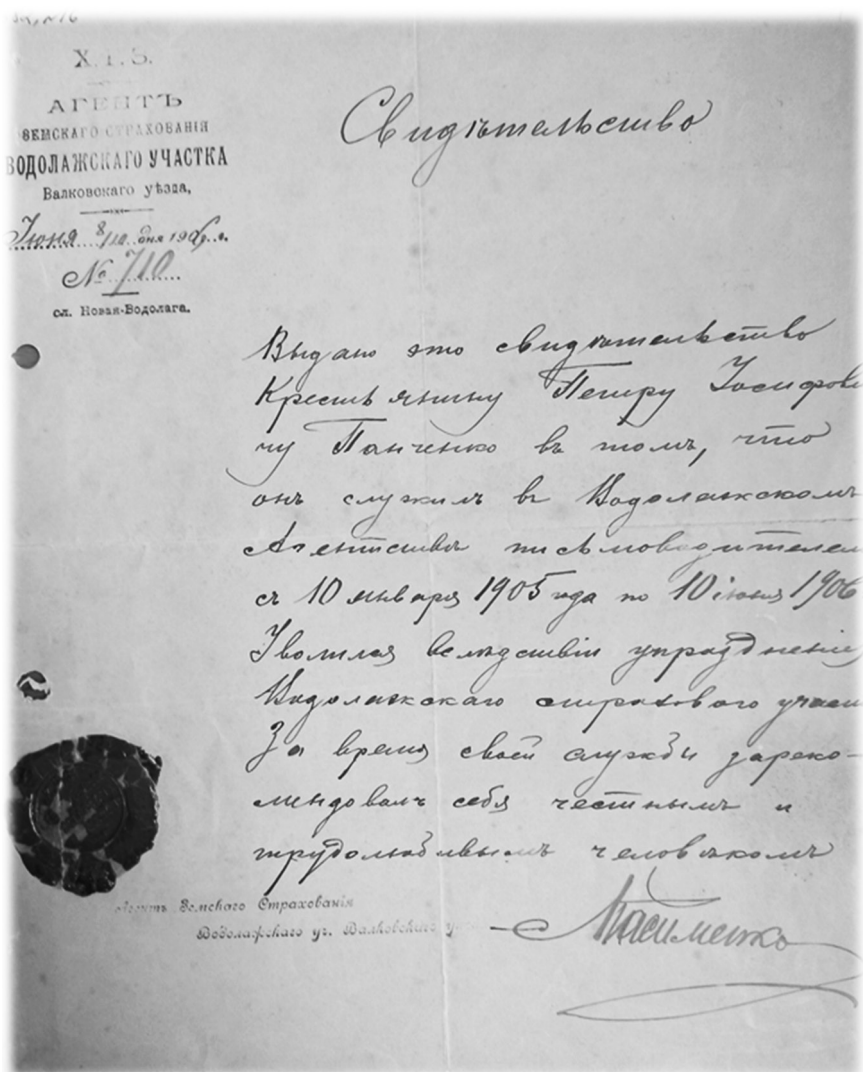 Х. Г. З.
АГЕНТЪ
ЗЕМСКАГО СТРАХОВАНІЯ
ВОДОЛАЖСКАГО УЧАСТКА
Валковскаго уѣзда,
Іюня 8/10 дня 1906 г.
№ 710
сл. Новая-Водолага.
Свидѣтельство
Выдано это свидѣтельство
Крестьянину Петру Іосифови
чу Панченко въ томъ, что
онъ служилъ въ Водолажскомъ
Агентствѣ письмоводителем
съ 10 января 1905 года по 10 іюня 1906
Уволился вслѣдствіи упраздненія
Водолажскаго страхового участ
За время своей службы зареко-
мендовалъ себя честнымъ и
трудолюбивымъ человѣкомъ
Агентъ Земскаго Страхованія
Водолажскаго уч. Валковскаго